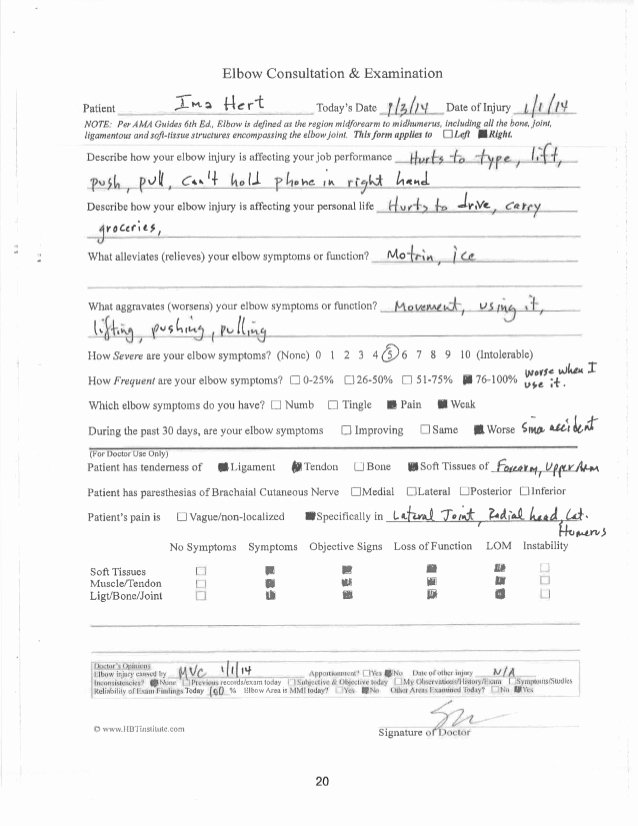 Elbow Consultation & Examination
Patient Ima Hert Today's Date 1/3/14 Date of Injury 1/1/14
NOTE: Per AMA Guides 6th Ed., Elbow is defined as the region midforearm to midhumerus, including all the bone, joint,
ligamentous and soft-tissue structures encompassing the elbow joint. This form applies to ☐Left ■Right.
Describe how your elbow injury is affecting your job performance Hurts to type, lift,
push, pull, can't hold phone in right hand
Describe how your elbow injury is affecting your personal life Hurts to drive, carry
groceries,
What alleviates (relieves) your elbow symptoms or function? Motrin, ice
What aggravates (worsens) your elbow symptoms or function? Movement, using it,
lifting, pushing, pulling
How Severe are your elbow symptoms? (None) 0 1 2 3 4 5 6 7 8 9 10 (Intolerable)
How Frequent are your elbow symptoms? ☐ 0-25% ☐ 26-50% ☐ 51-75% ■ 76-100% worse when I
use it.
Which elbow symptoms do you have? ☐ Numb ☐ Tingle ■ Pain ■ Weak
During the past 30 days, are your elbow symptoms ☐ Improving ☐ Same ■ Worse Since accident
(For Doctor Use Only)
Patient has tenderness of ■Ligament ■Tendon ☐Bone ■Soft Tissues of Forearm, Upper Arm
Patient has paresthesias of Brachaial Cutaneous Nerve ☐Medial ☐Lateral ☐Posterior ☐Inferior
Patient's pain is ☐ Vague/non-localized ■Specifically in Lateral Joint, Radial head, Lat.
Humerus
No Symptoms Symptoms Objective Signs Loss of Function LOM Instability
Soft Tissues ☐ ■ ■ ■ ■ ☐
Muscle/Tendon ☐ ■ ■ ■ ■ ☐
Ligt/Bone/Joint ☐ ■ ■ ■ ■ ☐
Doctor's Opinions
Elbow injury caused by MVC 1/1/14 Apportionment? ☐Yes ■No Date of other injury N/A
Inconsistencies? ■None ☐Previous records/exam today ☐Subjective & Objective today ☐My Observations/History/Exam ☐Symptoms/Studies
Reliability of Exam Findings Today 100 % Elbow Area is MMI today? ☐Yes ■No Other Areas Examined Today? ☐No ■Yes
© www.HBTinstitute.com Signature of Doctor
20